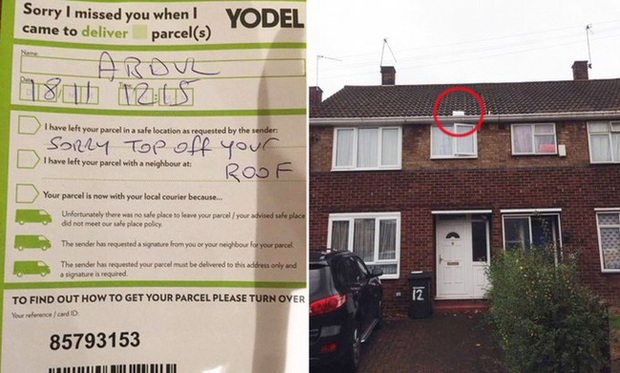 Sorry I missed you when I
came to deliver parcel(s)
YODEL
Name:
ABDUL
Date: Time:
18 11 12:15
I have left your parcel in a safe location as requested by the sender:
SORRY TOP OFF YOUR
I have left your parcel with a neighbour at:
ROOF
Your parcel is now with your local courier because...
Unfortunately there was no safe place to leave your parcel / your advised safe place
did not meet our safe place policy.
The sender has requested a signature from you or your neighbour for your parcel.
The sender has requested your parcel must be delivered to this address only and
a signature is required.
TO FIND OUT HOW TO GET YOUR PARCEL PLEASE TURN OVER
Your reference / card ID:
85793153
12